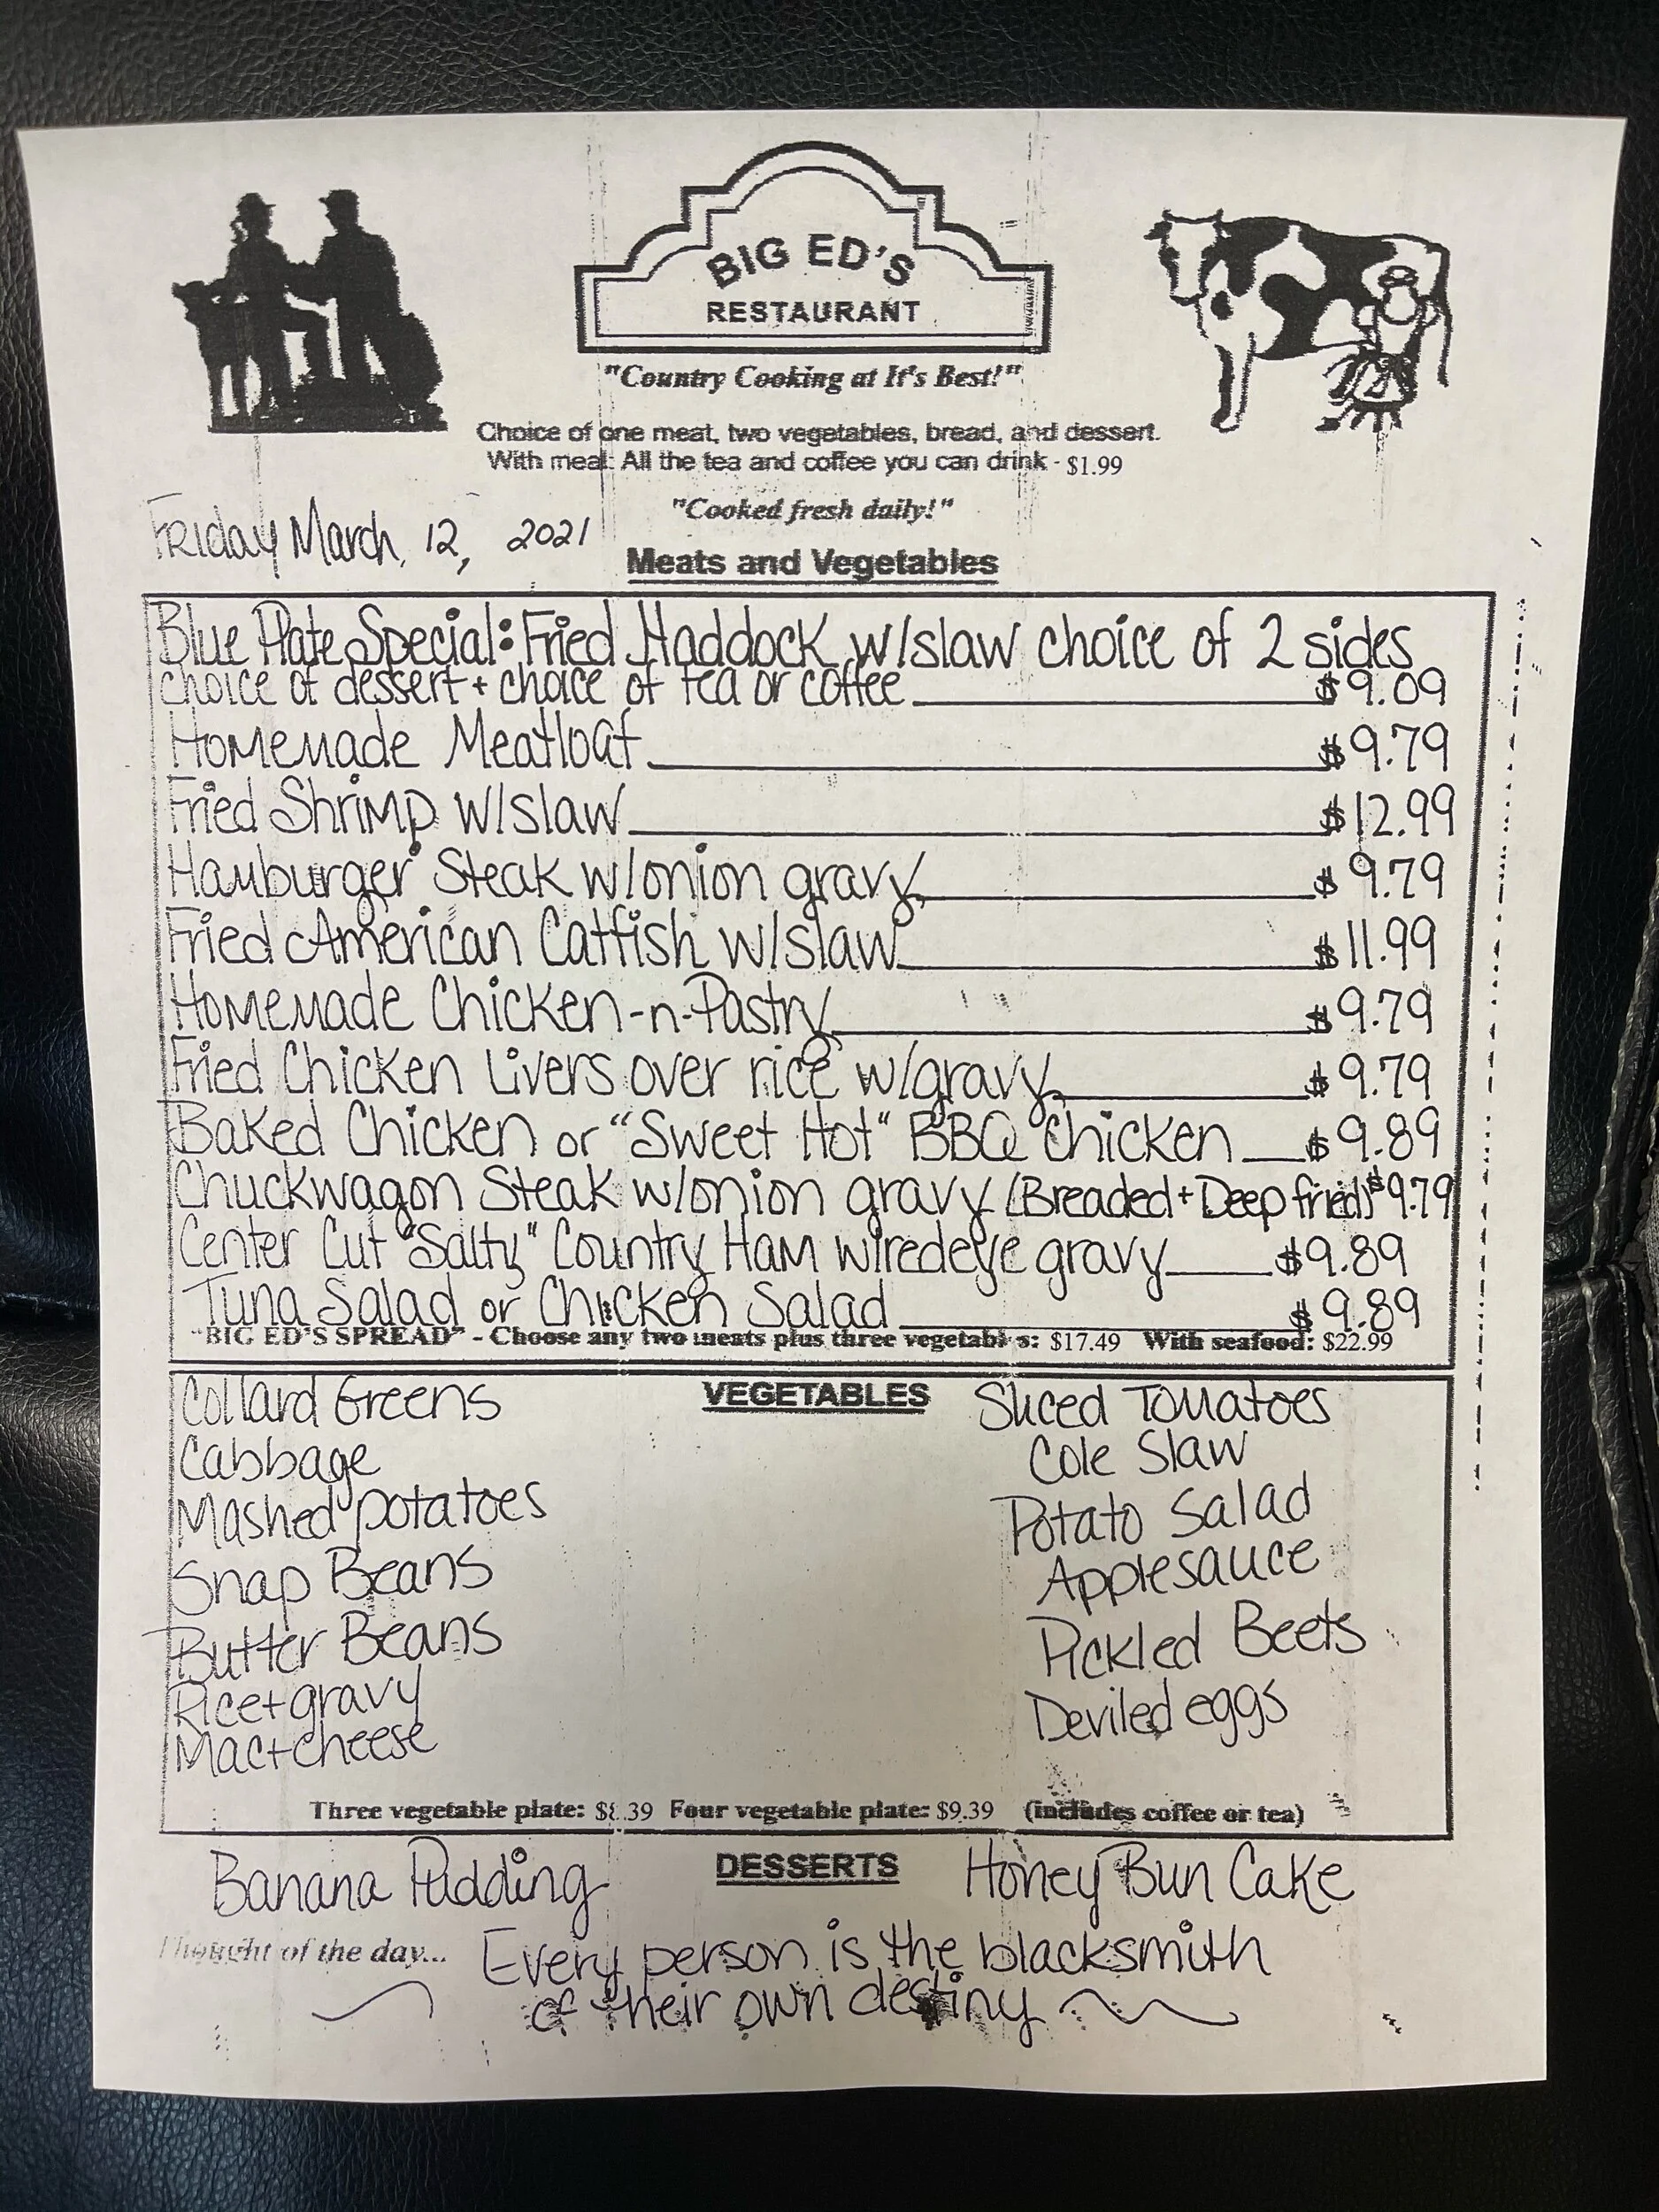 BIG ED'S
RESTAURANT
"Country Cooking at It's Best!"
Choice of one meat, two vegetables, bread, and dessert.
With meal: All the tea and coffee you can drink - $1.99
"Cooked fresh daily!"
Friday March, 12, 2021
Meats and Vegetables
Blue Plate Special: Fried Haddock w/slaw choice of 2 sides
choice of dessert + choice of tea or coffee $9.09
Homemade Meatloaf $9.79
Fried Shrimp w/slaw $12.99
Hamburger Steak w/onion gravy $9.79
Fried American Catfish w/slaw $11.99
Homemade Chicken-n-Pastry $9.79
Fried Chicken Livers over rice w/gravy $9.79
Baked Chicken or "Sweet Hot" BBQ Chicken $9.89
Chuckwagon Steak w/onion gravy (Breaded + Deep fried) $9.79
Center Cut "Salty" Country Ham w/redeye gravy $9.89
Tuna Salad or Chicken Salad $9.89
"BIG ED'S SPREAD" - Choose any two meats plus three vegetables: $17.49 With seafood: $22.99
VEGETABLES
Collard Greens
Cabbage
Mashed potatoes
Snap Beans
Butter Beans
Rice + gravy
Mac + cheese
Sliced Tomatoes
Cole Slaw
Potato Salad
Applesauce
Pickled Beets
Deviled eggs
Three vegetable plate: $8.39 Four vegetable plate: $9.39 (includes coffee or tea)
DESSERTS
Banana Pudding Honey Bun Cake
Thought of the day... Every person is the blacksmith
of their own destiny